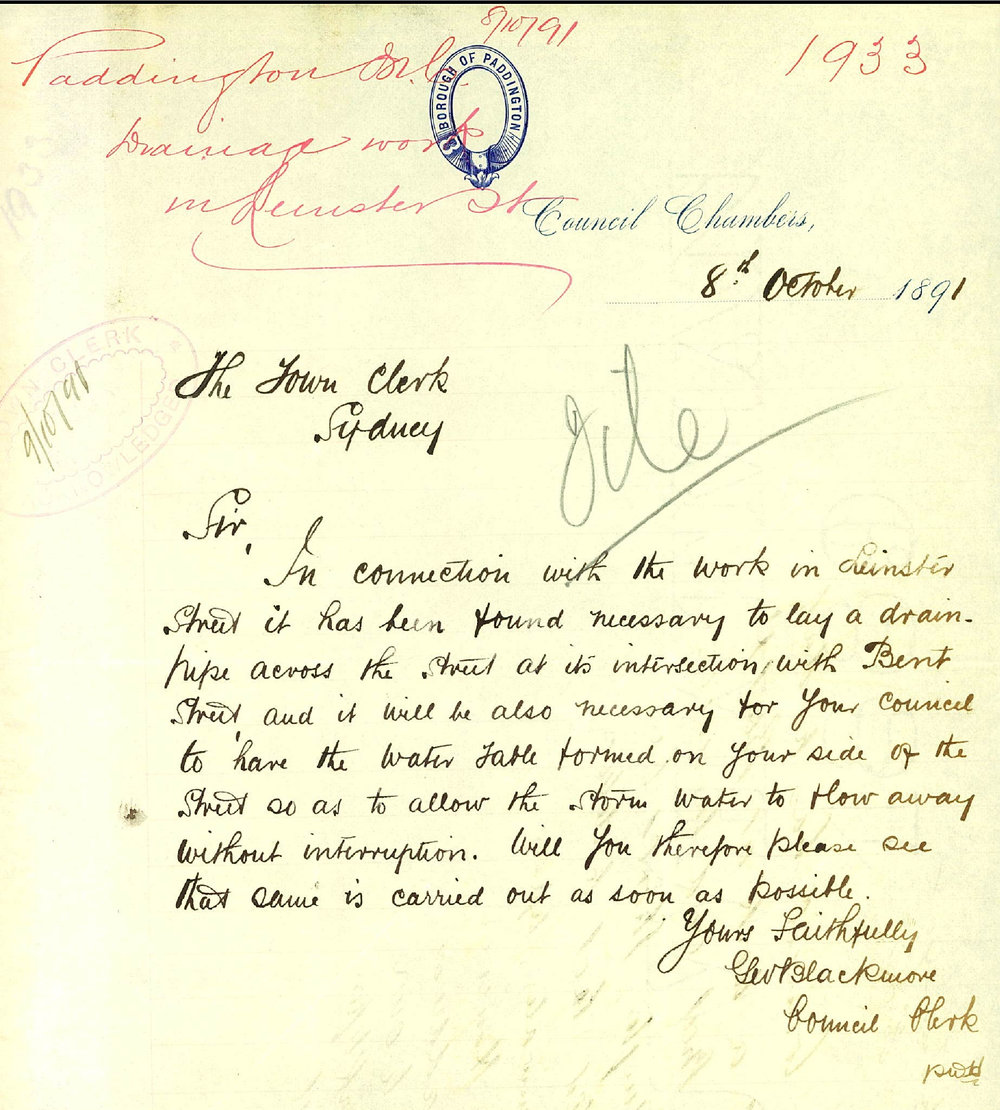 8/10/91
Paddington M.C.
1933
Drainage work
in Leinster St
BOROUGH OF PADDINGTON
Council Chambers,
8th October 1891
TOWN CLERK
9/10/91
ACKNOWLEDGED
The Town Clerk
Sydney
File
Sir,
In connection with the work in Leinster
Street it has been found necessary to lay a drain-
pipe across the street at its intersection with Bent
Street, and it will be also necessary for Your Council
to have the water table formed on Your side of the
Street so as to allow the storm water to flow away
without interruption. Will You therefore please see
that same is carried out as soon as possible.
Yours Faithfully
Geo Blackmore
Council Clerk